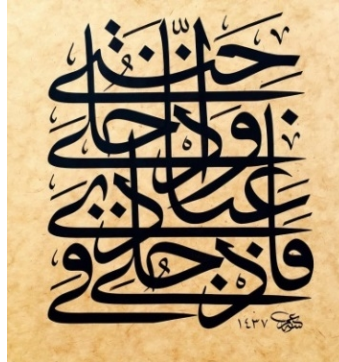 فادخلي في
عبادي
وادخلي
جنتي
١٤٣٧